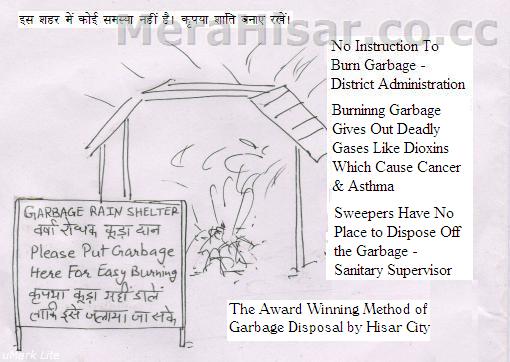 इस शहर में कोई समस्या नहीं है। कृपया शांति बनाए रखें।
MeraHisar.co.cc
No Instruction To
Burn Garbage -
District Administration
Burninng Garbage
Gives Out Deadly
Gases Like Dioxins
Which Cause Cancer
& Asthma
Sweepers Have No
Place to Dispose Off
the Garbage -
Sanitary Supervisor
GARBAGE RAIN SHELTER
वर्षा रोधक कूड़ा दान
Please Put Garbage
Here For Easy Burning
कृपया कूड़ा यहीं डालें
ताकि इसे जलाया जा सके
The Award Winning Method of
Garbage Disposal by Hisar City
uMark Lite